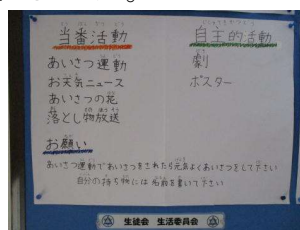 当番活動
あいさつ運動
お天気ニュース
あいさつの花
落とし物放送
自主的活動
劇
ポスター
お願い
あいさつ運動であいさつをされたら元気よくあいさつをして下さい
自分の持ち物には名前を書いて下さい
生徒会 生活委員会